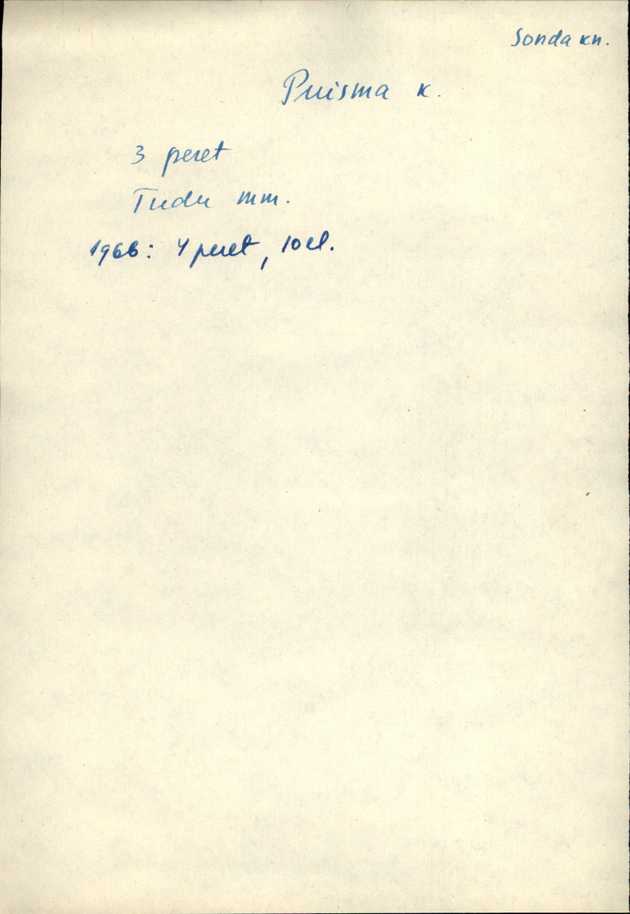 Sonda kn.
Puisma k.
3 peret
Tudu mm.
1966: 4 peret, 10 el.